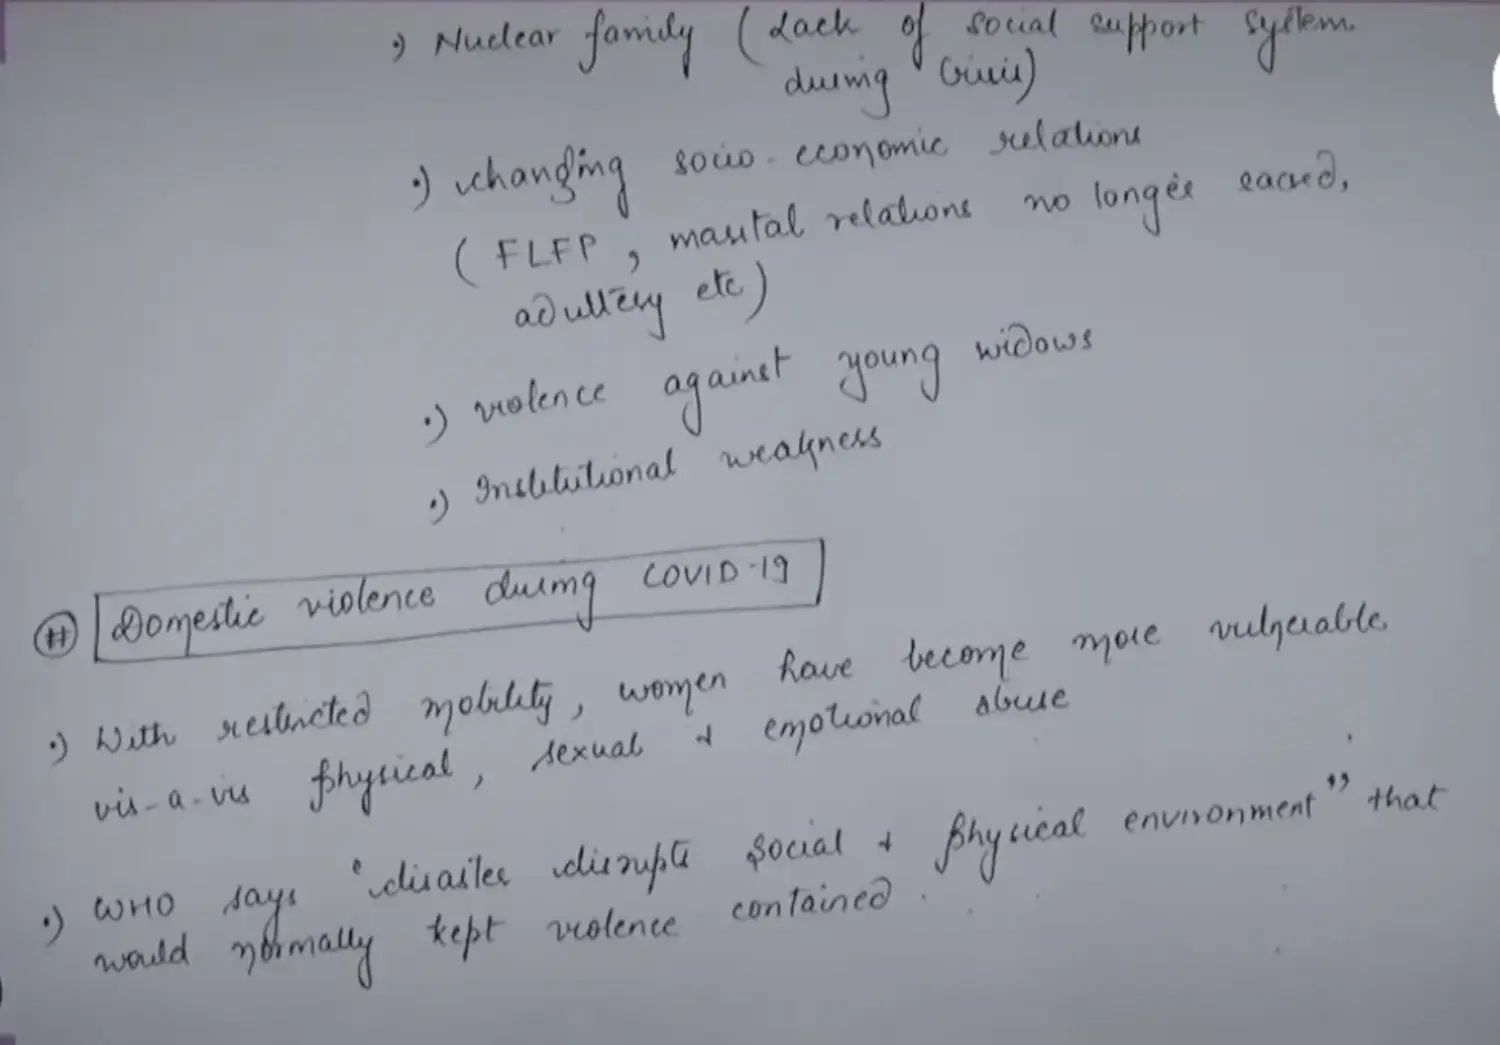 •) Nuclear family (Lack of social support system
during Crisis)
•) changing socio-economic relations
( FLFP , marital relations no longer sacred,
adultery etc)
•) violence against young widows
•) Institutional weakness
# Domestic violence during COVID-19
•) With restricted mobility, women have become more vulnerable
vis-a-vis physical, sexual & emotional abuse
•) WHO says "disaster disrupts social & physical environment" that
would normally kept violence contained.